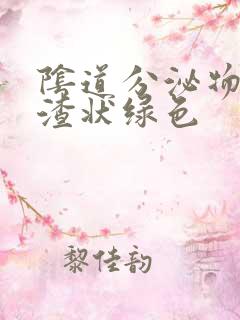 陰道分泌物
渣状绿色
黎佳韵